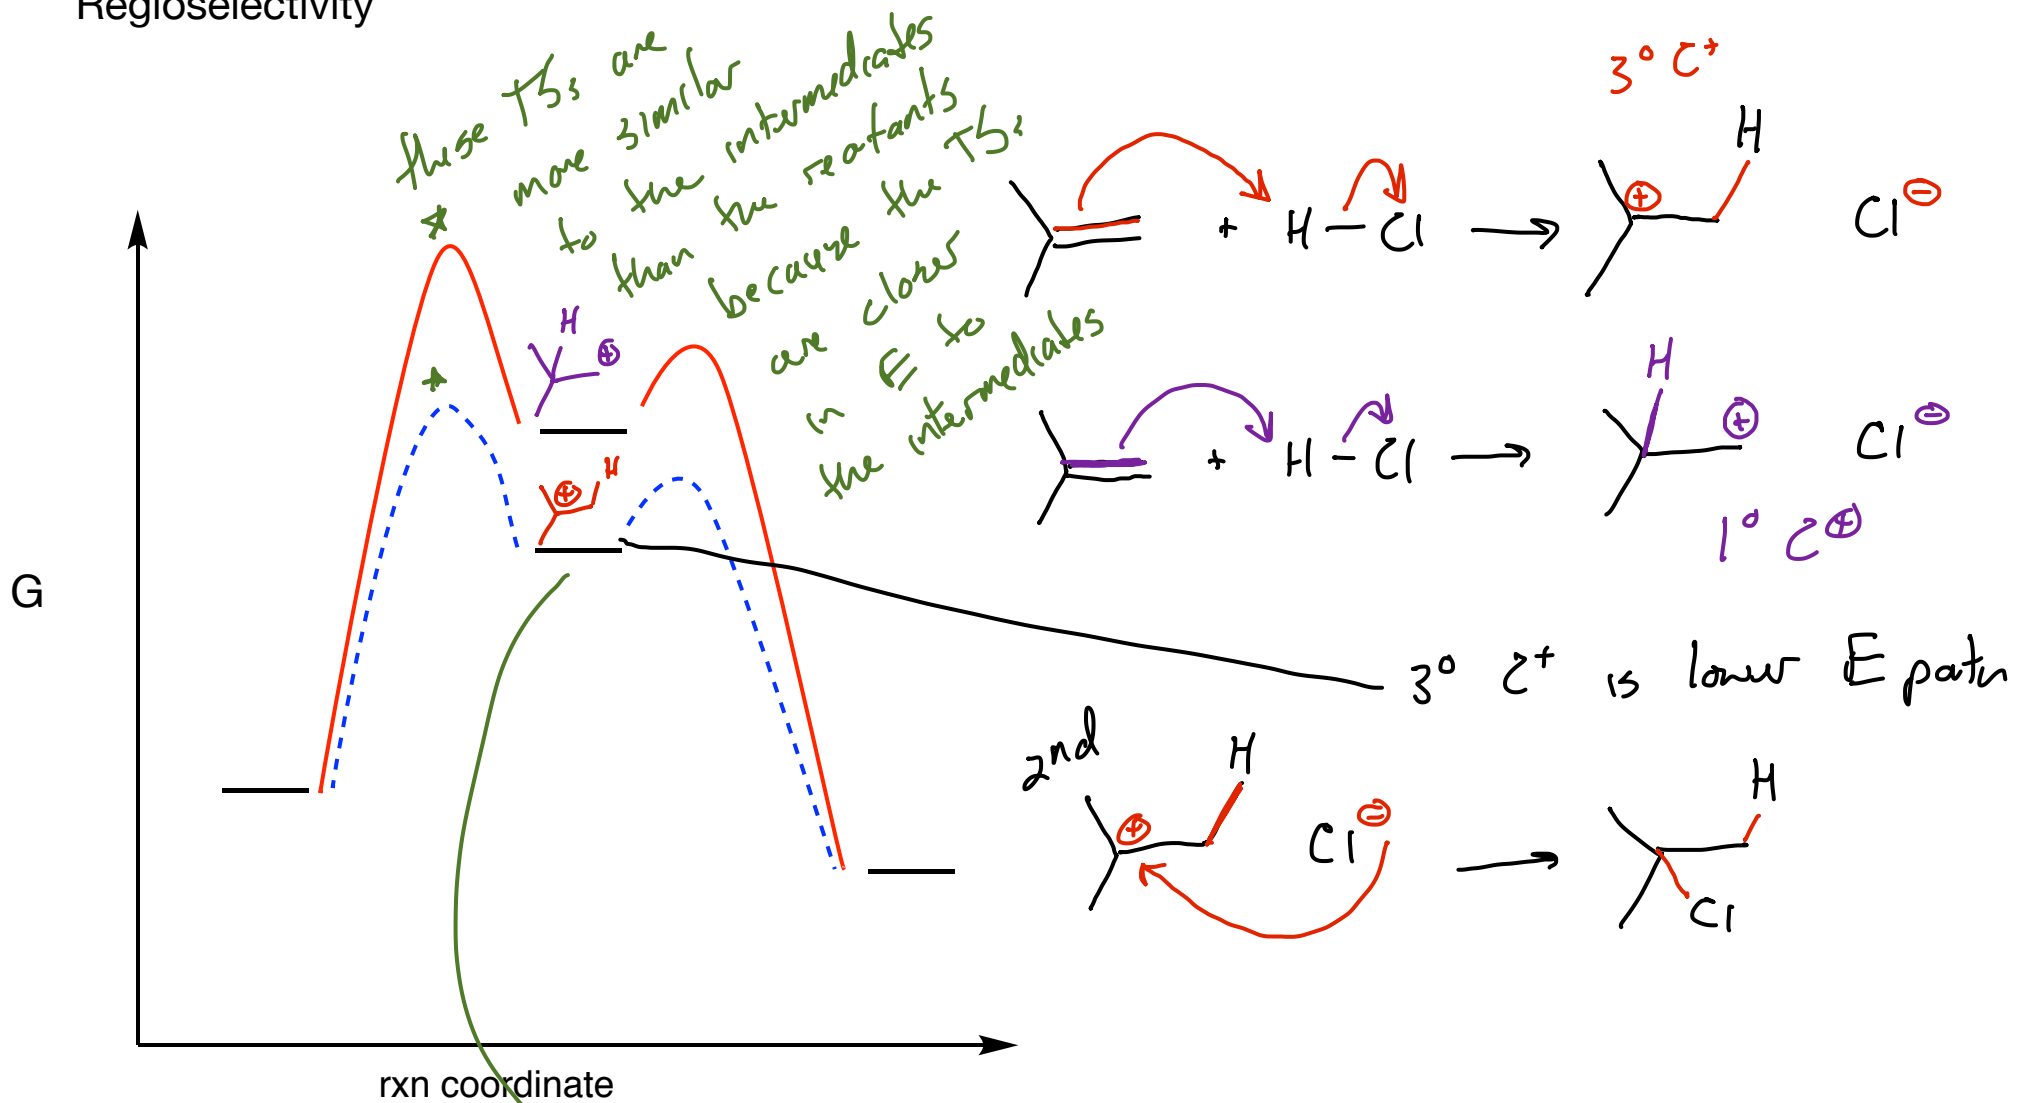 Regioselectivity
these TSs are
more similar
to the intermediates
than the reatants
because the TSs
are closer
in E to
the intermediates
3° C+
H
+ H–Cl → ⊕ Cl⊖
H
+ H–Cl → ⊕ Cl⊖
1° C⊕
H
⊕
H
⊕
G
3° C+ is lower E path
2nd
H
⊕ Cl⊖ →
H
Cl
rxn coordinate